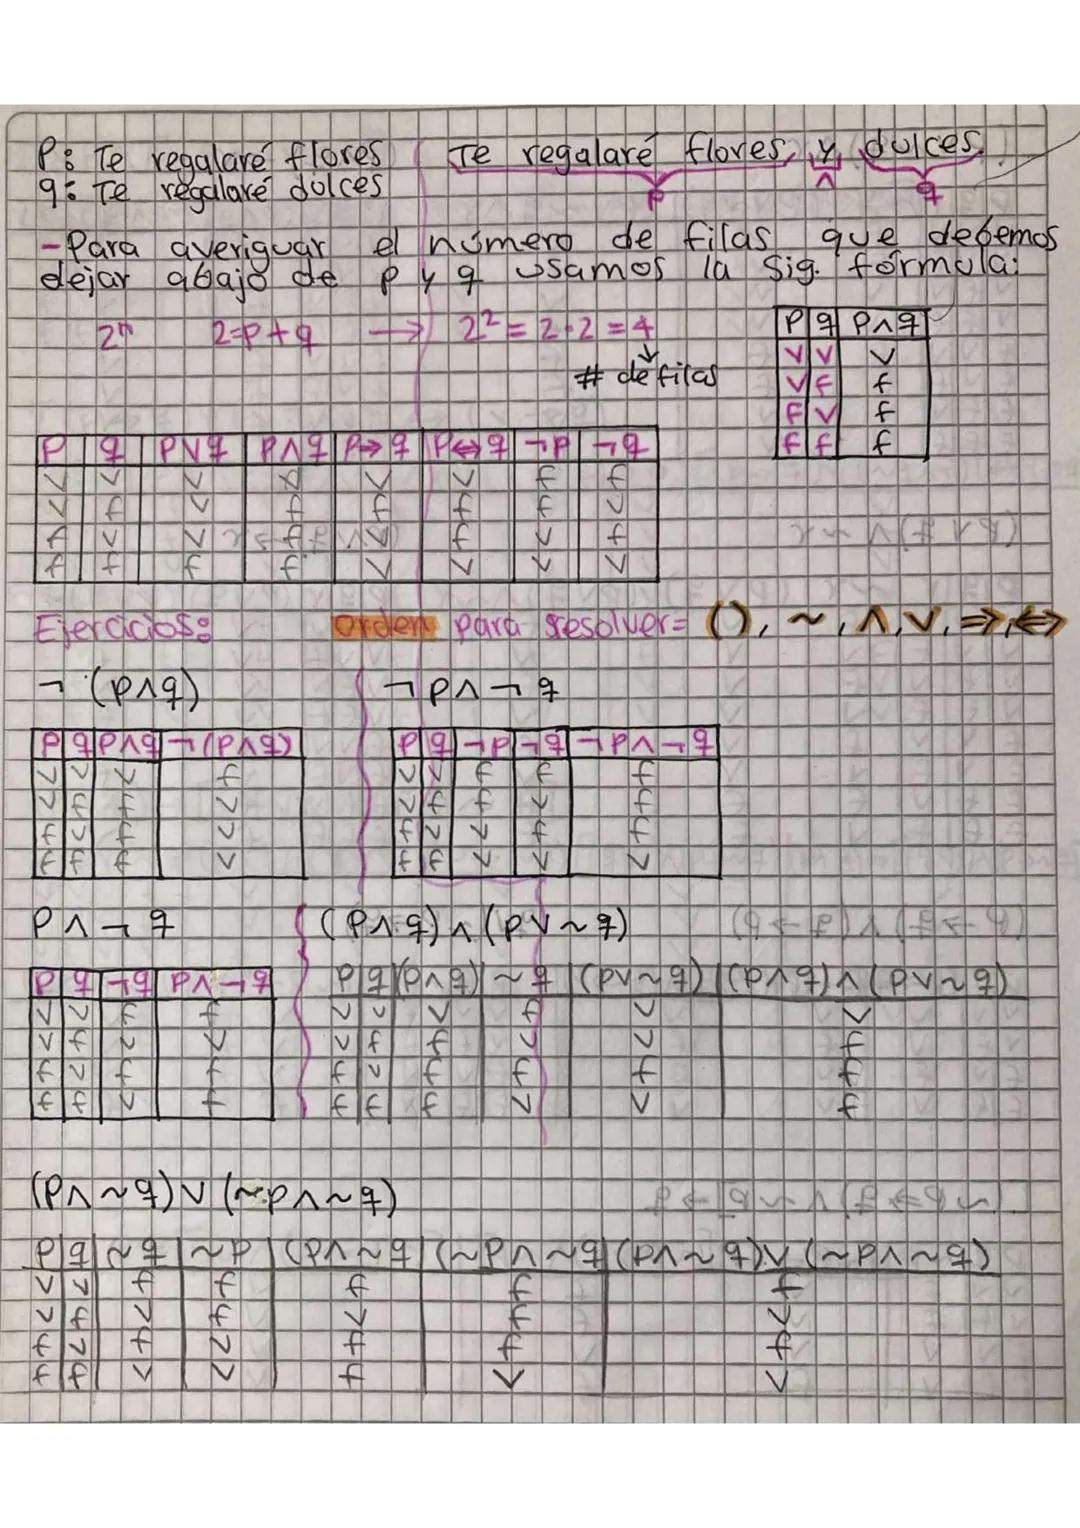 P: Te regalaré flores
q: Te regalaré dulces
Te regalaré flores, y dulces.
p ∧ q
-Para averiguar el número de filas que debemos
dejar abajo de p y q usamos la sig. fórmula:
2ⁿ 2=p+q → 2² = 2·2 = 4
# de filas
P q P∧q
V V V
V F f
F V f
f f f
P q P∨q P∧q P→q P↔q ¬P ¬q
V V V V V V f f
V f V f f f f V
f V V f V f V f
f f f f V V V V
Ejercicios:
Orden para resolver= (), ~, ∧, ∨, ⇒, ⇔
¬ (p∧q)
P q P∧q ¬(P∧q)
V V V f
V f f V
f V f V
f f f V
¬ p ∧ ¬ q
P q ¬P ¬q ¬P∧¬q
V V f f f
V f f V f
f V V f f
f f V V V
P ∧ ¬ q
P q ¬q P∧¬q
V V f f
V f V V
f V f f
f f V f
(P∧q) ∧ (p∨~q)
P q (p∧q) ~q (p∨~q) (p∧q)∧(p∨~q)
V V V f V V
V f f V V f
f V f f f f
f f f V V f
(p∧~q) ∨ (~p∧~q)
P q ~q ~p (p∧~q (~p∧~q (p∧~q)∨(~p∧~q)
V V f f f f f
V f V f V f V
f V f V f f f
f f V V f V V